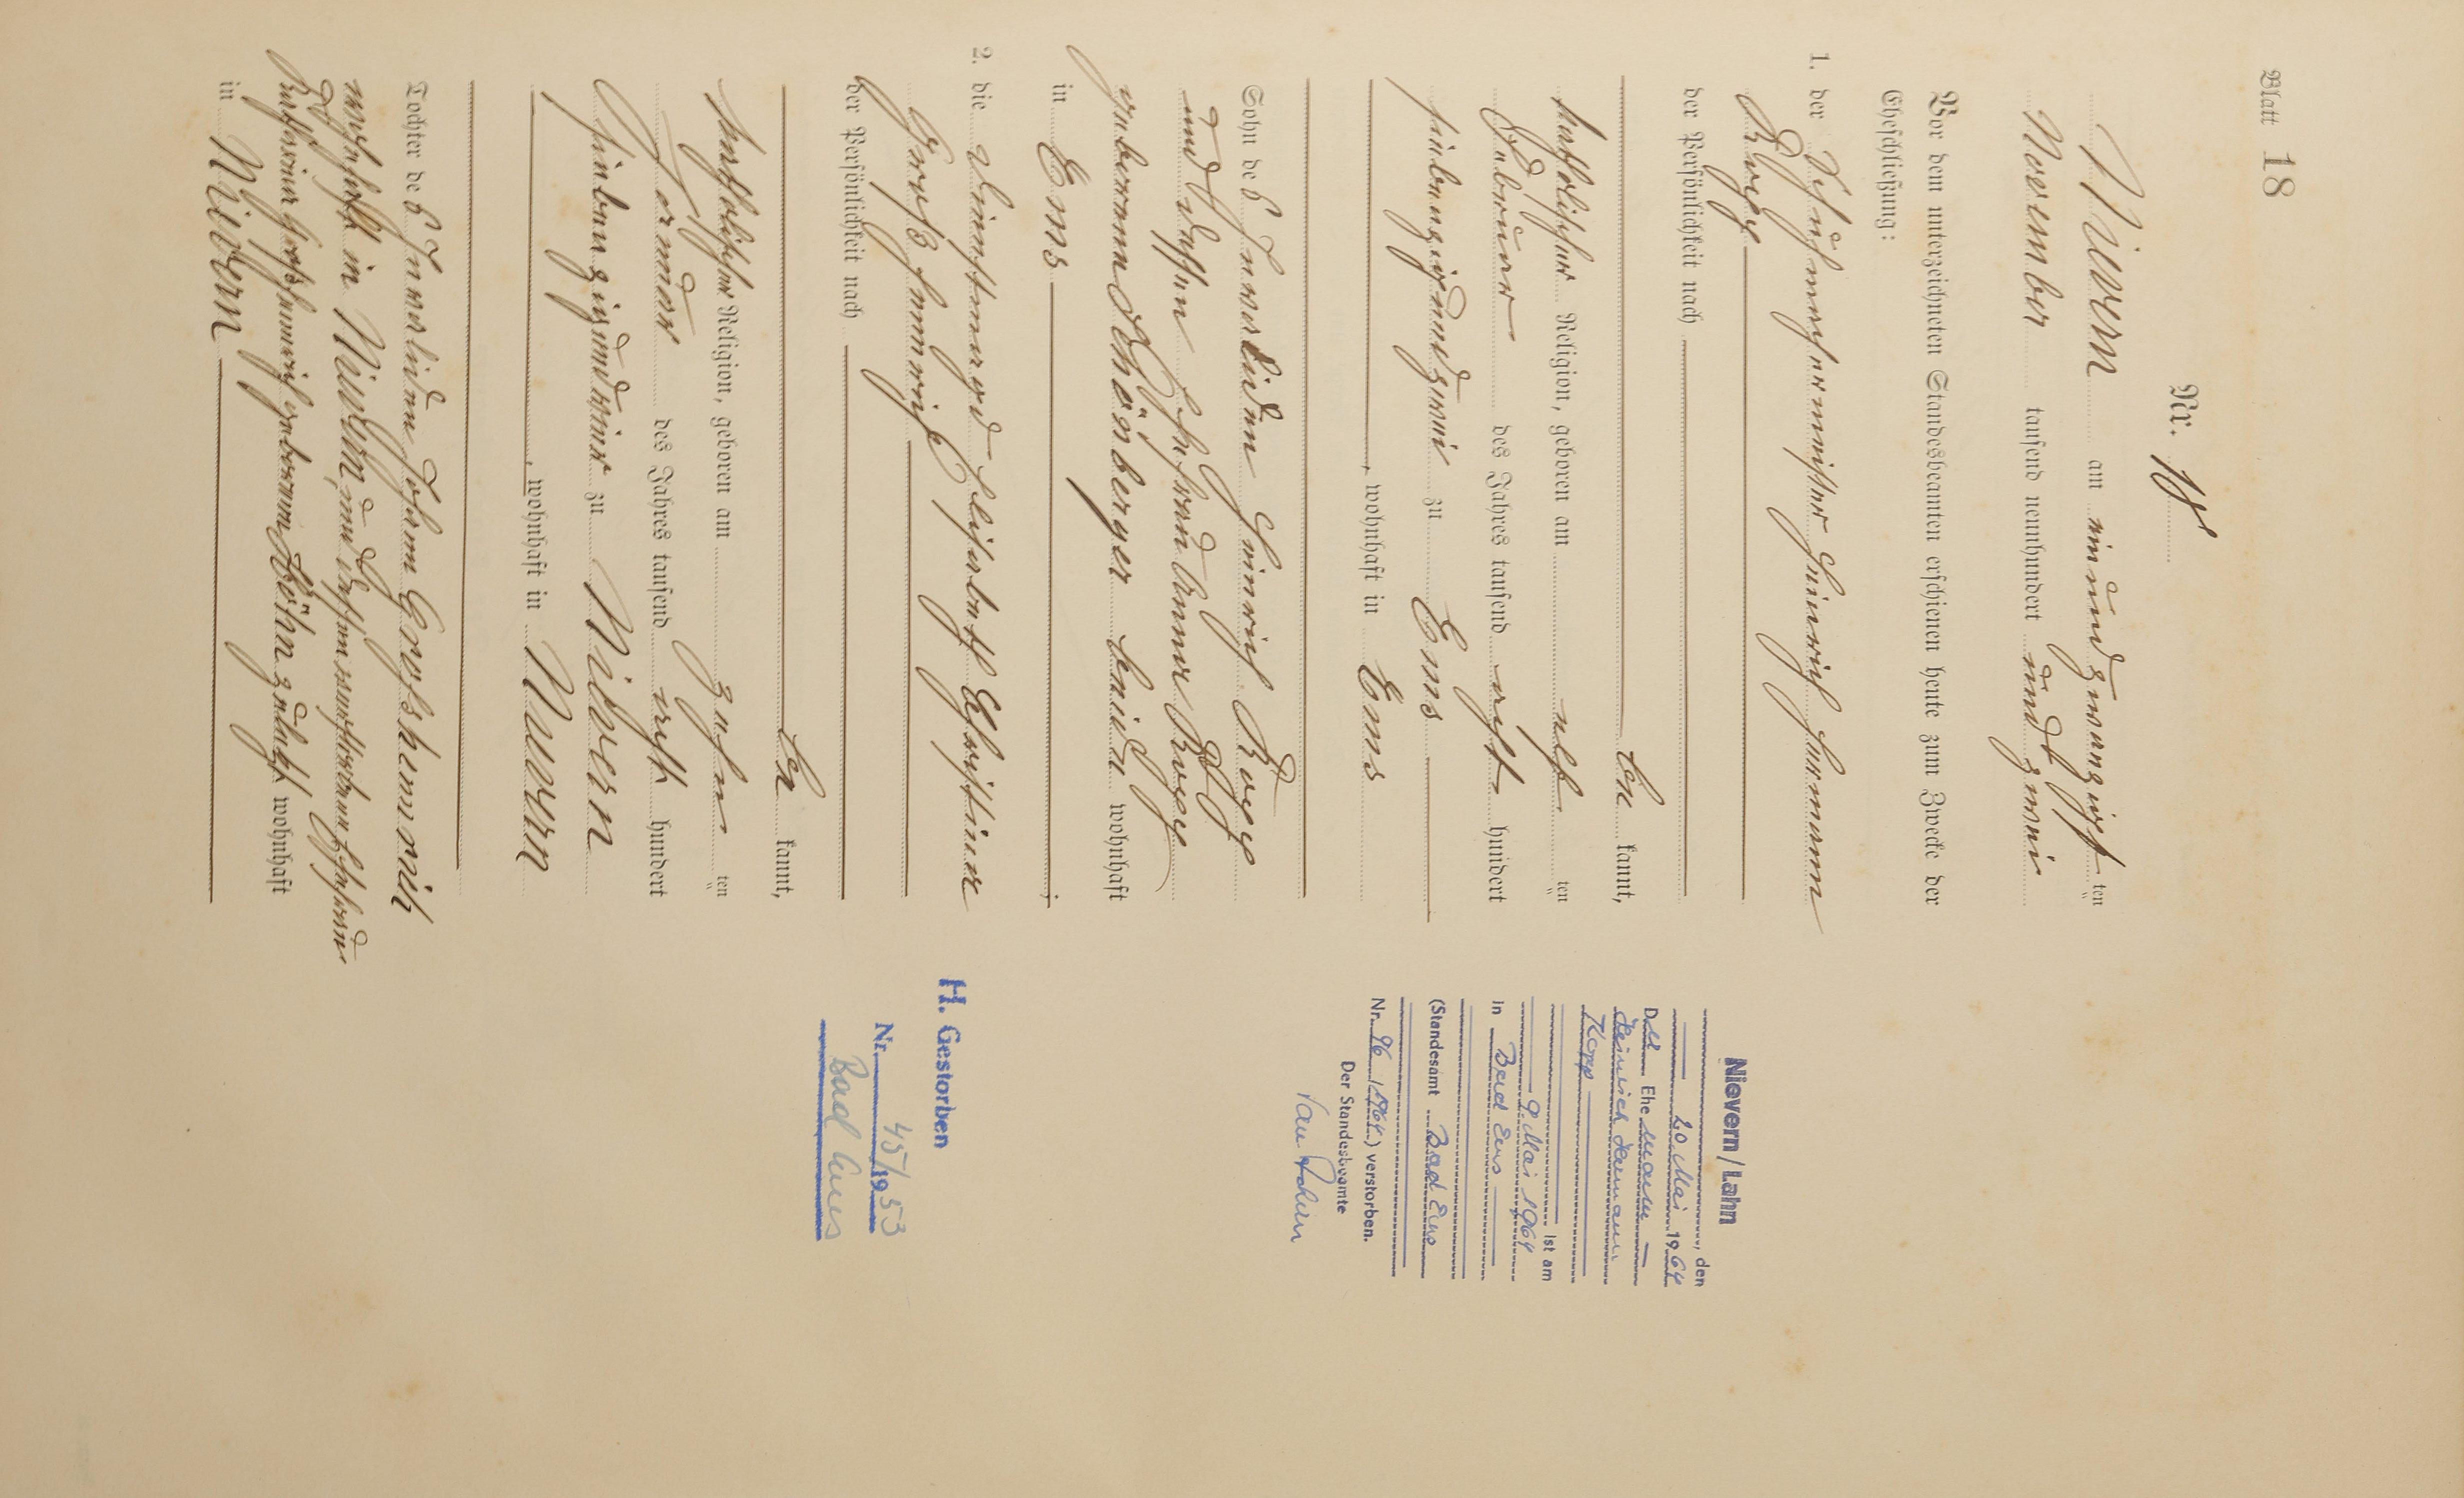 Blatt 18
Nr. 18
Nievern am einundzwanzigsten
November tausend neunhundert undzwei
Vor dem unterzeichneten Standesbeamten erschienen heute zum Zwecke der
Eheschließung:
1. der Schuhmachermeister Heinrich Hermann
Kopp
der Persönlichkeit nach
be kannt,
katholischer Religion, geboren am elf ten
Februar des Jahres tausend acht hundert
siebenzigundzwei zu Ems
, wohnhaft in Ems
Sohn des Invaliden Heinrich Kopp
und dessen Ehefrau Anna Kopp
geborene Schönberger beide wohnhaft
in Ems
2. die Dienstmagd Elisabeth Christina
Großhennrich
der Persönlichkeit nach
be kannt,
katholischer Religion, geboren am zehn ten
Januar des Jahres tausend acht hundert
siebenzigund zu Nievern
, wohnhaft in Nievern
Tochter des Invaliden Johann Grosshennrich
wohnhaft in Nievern und dessen verstorbenen Ehefrau
Katharina Großhennrich geborene Böhn zuletzt wohnhaft
in Nievern
Nievern/Lahn
, den
20. Mai 1964
Der Ehemann
Heinrich Hermann
Kopp
ist am
9. Mai 1964
in Bad Ems
(Standesamt Bad Ems
Nr. 96/1964) verstorben.
Der Standesbeamte
H. Gestorben
Nr. 45/1953
Bad Ems